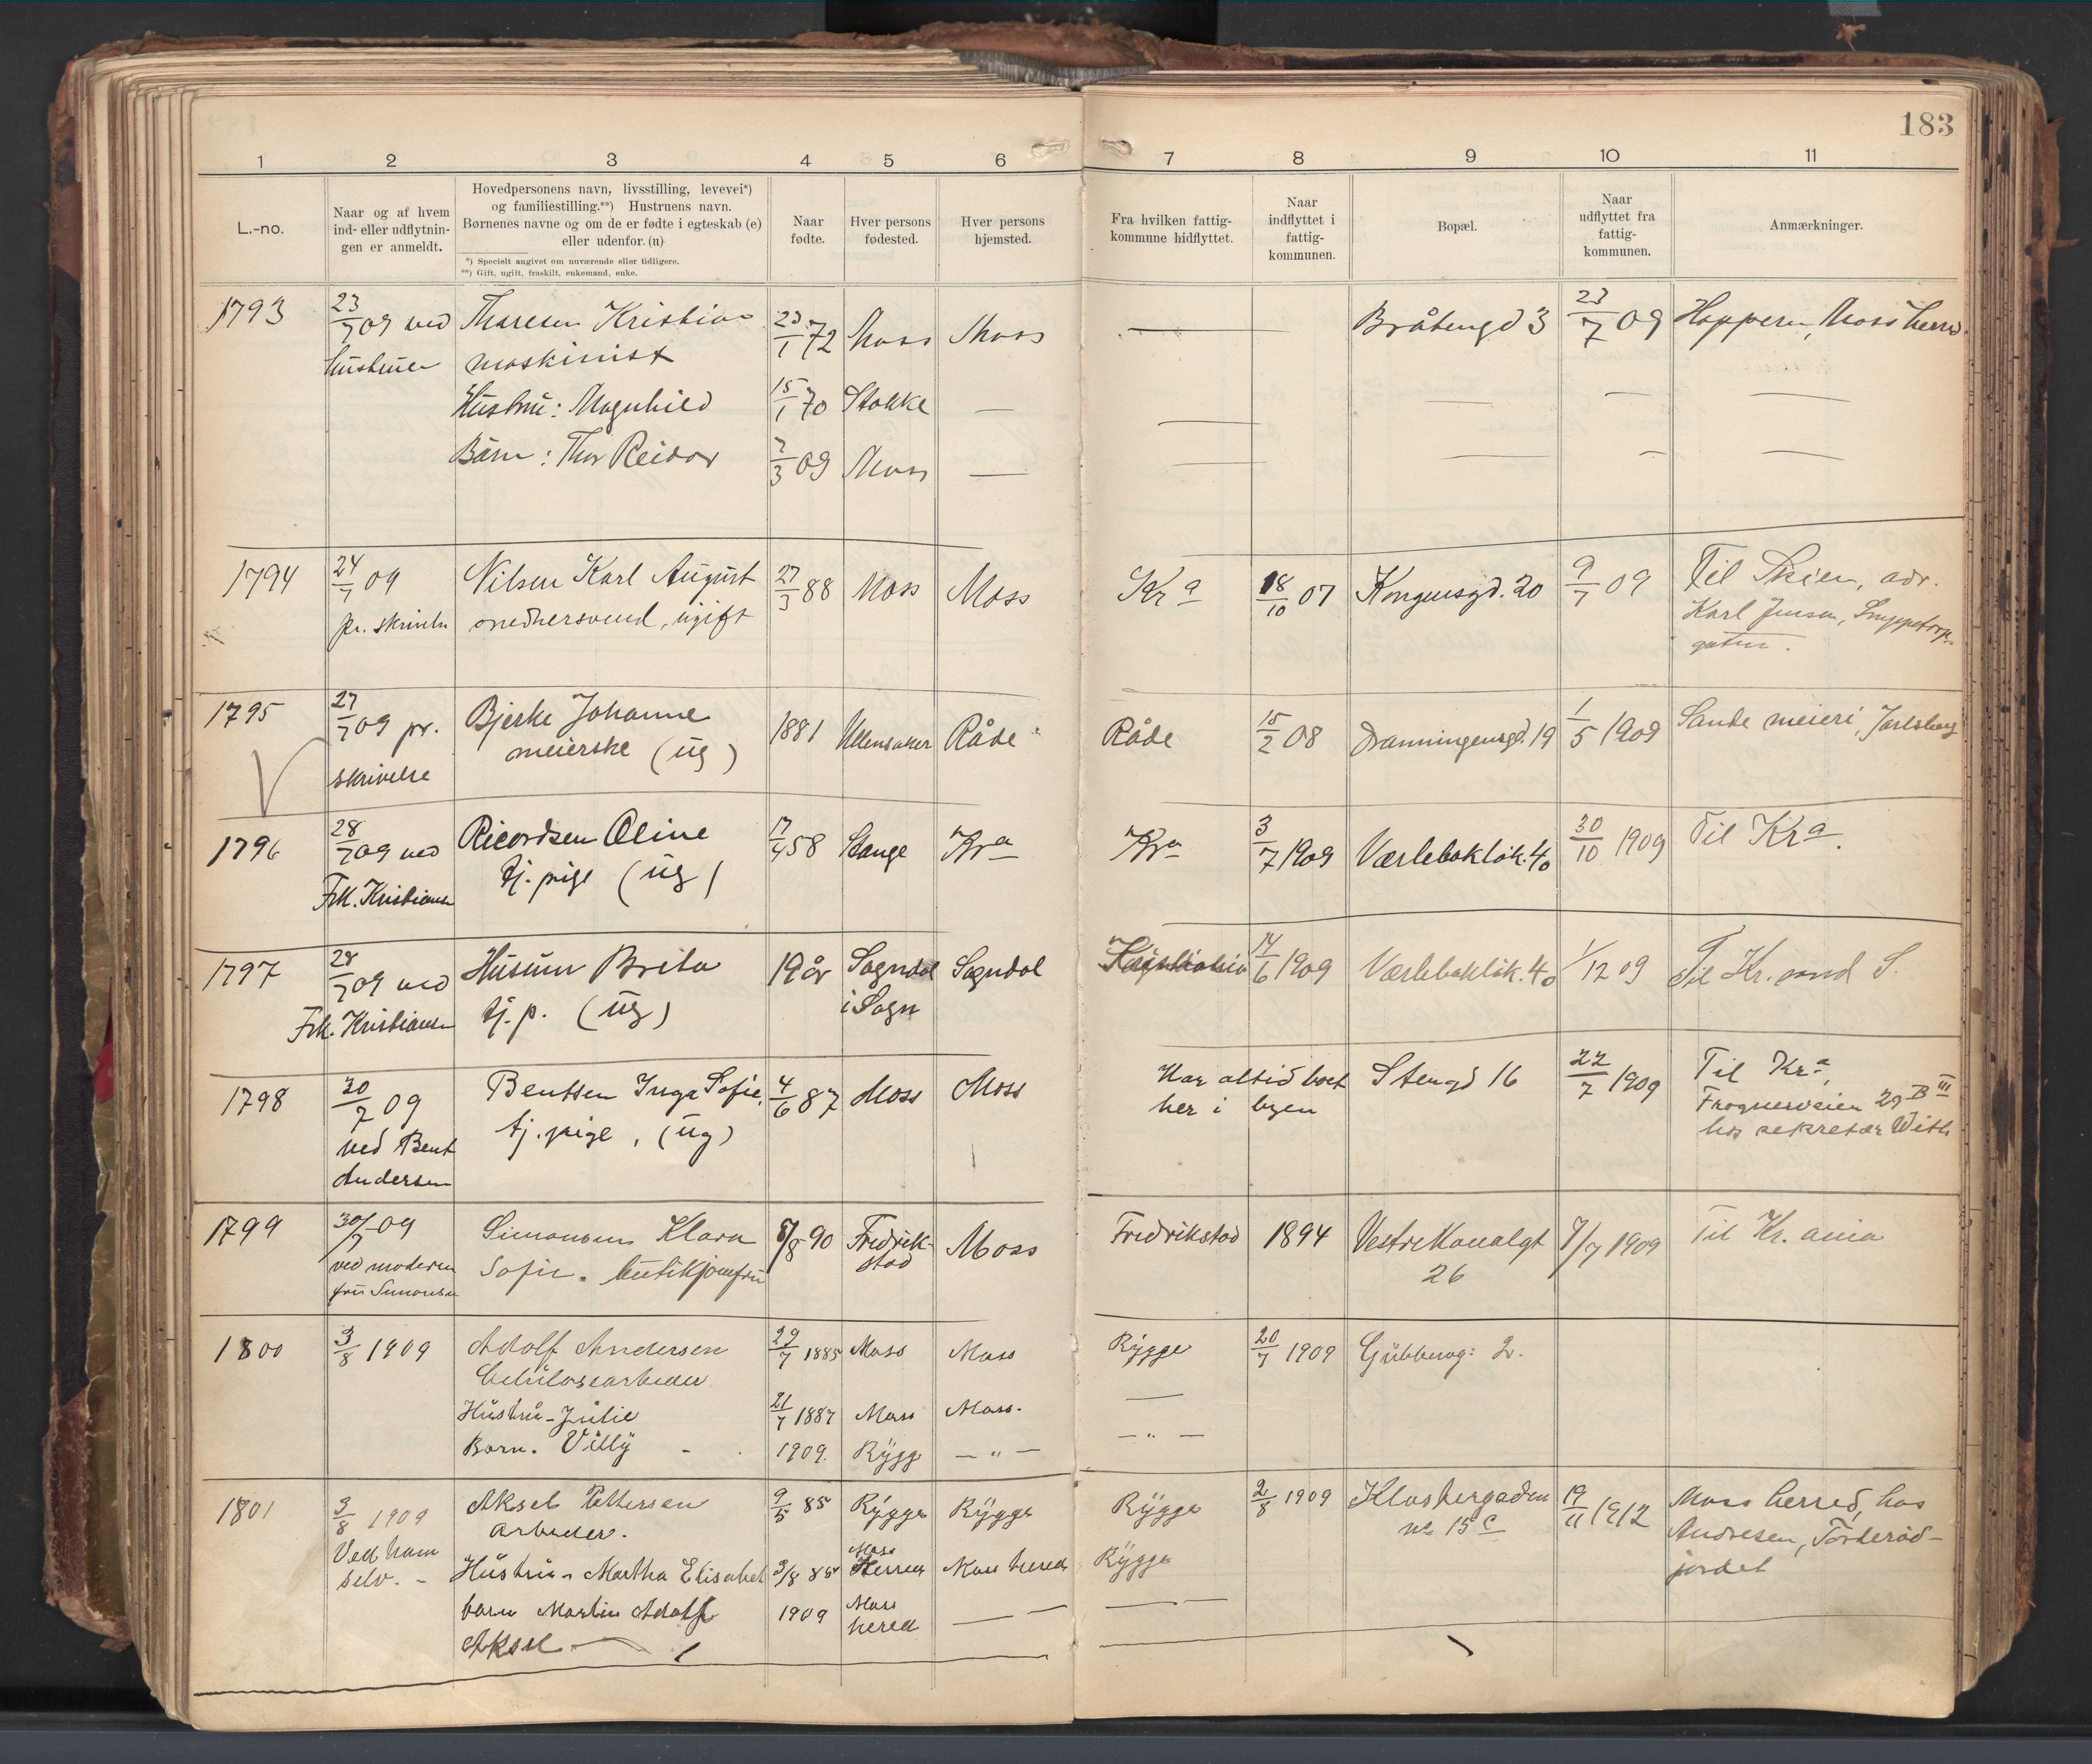 183
1 2 3 4 5 6 7 8 9 10 11
L.-no.
Naar og af hvem
ind- eller udflytnin-
gen er anmeldt.
Hovedpersonens navn, livsstilling, levevei*)
og familiestilling.**) Hustruens navn.
Børnenes navne og om de er fødte i egteskab (e)
eller udenfor. (u)
*) Specielt angivet om nuværende eller tidligere.
**) Gift, ugift, fraskilt, enkemand, enke.
Naar
fødte.
Hver persons
fødested.
Hver persons
hjemsted.
Fra hvilken fattig-
kommune hidflyttet.
Naar
indflyttet i
fattig-
kommunen.
Bopæl.
Naar
udflyttet fra
fattig-
kommunen.
Anmærkninger.
1793 23/7 09 ved Thoresen Kristian 23/1 72 Moss Moss — — Bråtengd 3 23/7 09 Hoppern, Moss herr.
hustruen maskinist
Hustru: Magnhild 15/1 70 Stokke — — — — —
Børn: Thor Reidar 7/3 09 Moss — — — — —
1794 24/7 09 Nilsen Karl August 27/3 88 Moss Moss Kra 18/10 07 Kongensgd. 20 9/7 09 Til Skien, adr.
pr. skrivelse snedkersvend, ugift Karl Jensen, Snippetorp-
gaten.
1795 27/7 09 pr. Bjerke Johanne 1881 Ullensaker Råde Råde 15/2 08 Dronningensgd. 19 1/5 1909 Sande meieri, Jarlsberg
skrivelse meierske (ug)
1796 28/7 09 ved Ricordsen Oline 17/4 58 Stange Kra Kra 3/7 1909 Værlebakløk. 40 30/10 1909 Til Kra.
Frk. Kristiansen tj. pige (ug)
1797 28/7 09 ved Husum Brita 19 år Sogndal Sogndal Kristiania 14/6 1909 Værlebakløk. 40 1/12 09 Til Kr. sand S.
Frk. Kristiansen tj. p. (ug) i Sogn
1798 30/7 09 Bentsen Inga Sofie, 4/6 87 Moss Moss Har altid boet Stengd 16 22/7 1909 Til Kra,
ved Bent tj. pige, (ug) her i byen Frognerveien 29 B III
Andersen hos sekretær With
1799 30/7 09 Simonsen Klara 6/8 90 Fredrik- Moss Fredrikstad 1894 Vestre Kanalgt 7/7 1909 Til Kr. ania
ved moderen Sofie. butikjomfru stad 26
fru Simonsen
1800 3/8 1909 Adolf Andersen 29/7 1885 Moss Moss Rygge 20/7 1909 Gubberog: 2.
Celulosearbeider
Hustru - Julie 21/7 1887 Moss Moss. —
Barn. Villy - 1909. Rygg — " — — " —
1801 3/8 1909 Aksel Pettersen 9/5 85 Rygge Rygge Rygge 2/8 1909 Klostergaden 19/11 1912 Moss herred, hos
Ved ham arbeider. no 15 c Andresen, Torderød-
selv. - Hustru - Martha Elisabet 3/8 85 Moss Herred Moss herred Rygge jordet
barn Martin Adolf 1909 Moss herred — — —
Aksel —